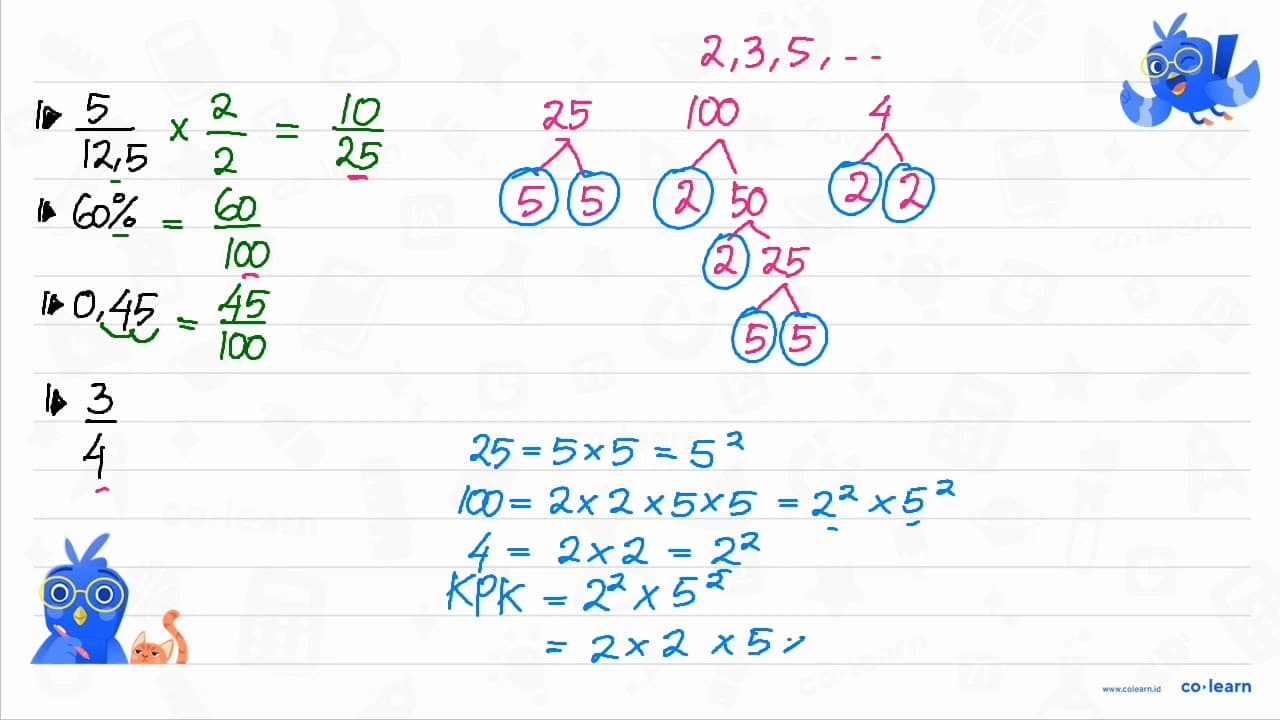 2, 3, 5, --
5/12,5 × 2/2 = 10/25
60% = 60/100
0,45 = 45/100
3/4
25
5 5
100
2 50
2 25
5 5
4
2 2
25 = 5 × 5 = 5²
100 = 2 × 2 × 5 × 5 = 2² × 5²
4 = 2 × 2 = 2²
KPK = 2² × 5²
= 2 × 2 × 5
www.colearn.id co·learn